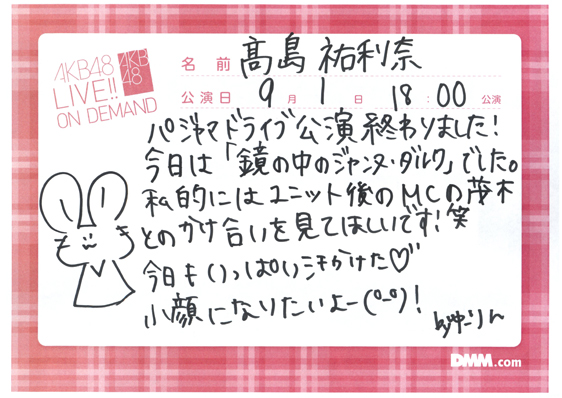 AKB48
LIVE!!
ON DEMAND
AKB
48
名前 髙島 祐利奈
公演日 9月 1日 18:00 公演
パジャマドライブ公演終わりました！
今日は「鏡の中のジャンヌ・ダルク」でした。
私的にはユニット後のMCの茂木
とのかけ合いを見てほしいです！笑
今日もいっぱい汗かけた♡
小顔になりたいよー(º_º)！
byゆーりん
DMM.com